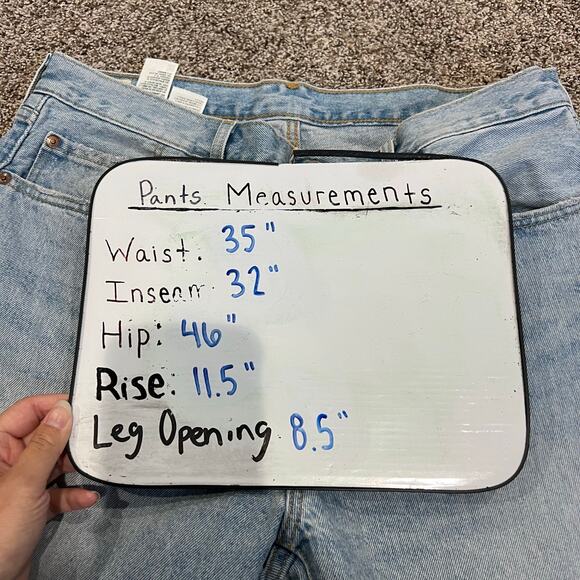 Pants Measurements
Waist: 35"
Inseam 32"
Hip: 46"
Rise: 11.5"
Leg Opening 8.5"